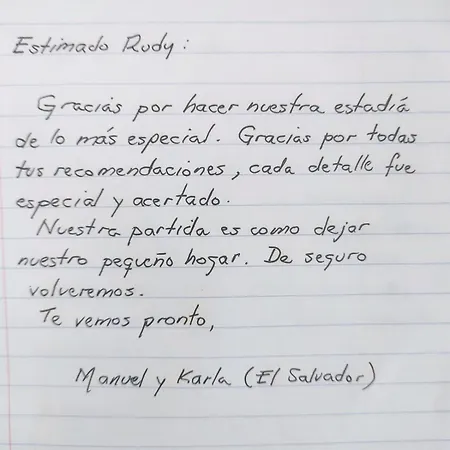 Estimado Rudy:
Gracias por hacer nuestra estadiá
de lo más especial. Gracias por todas
tus recomendaciones, cada detalle fue
especial y acertado.
Nuestra partida es como dejar
nuestro pequeño hogar. De seguro
volveremos.
Te vemos pronto,
Manuel y Karla (El Salvador)